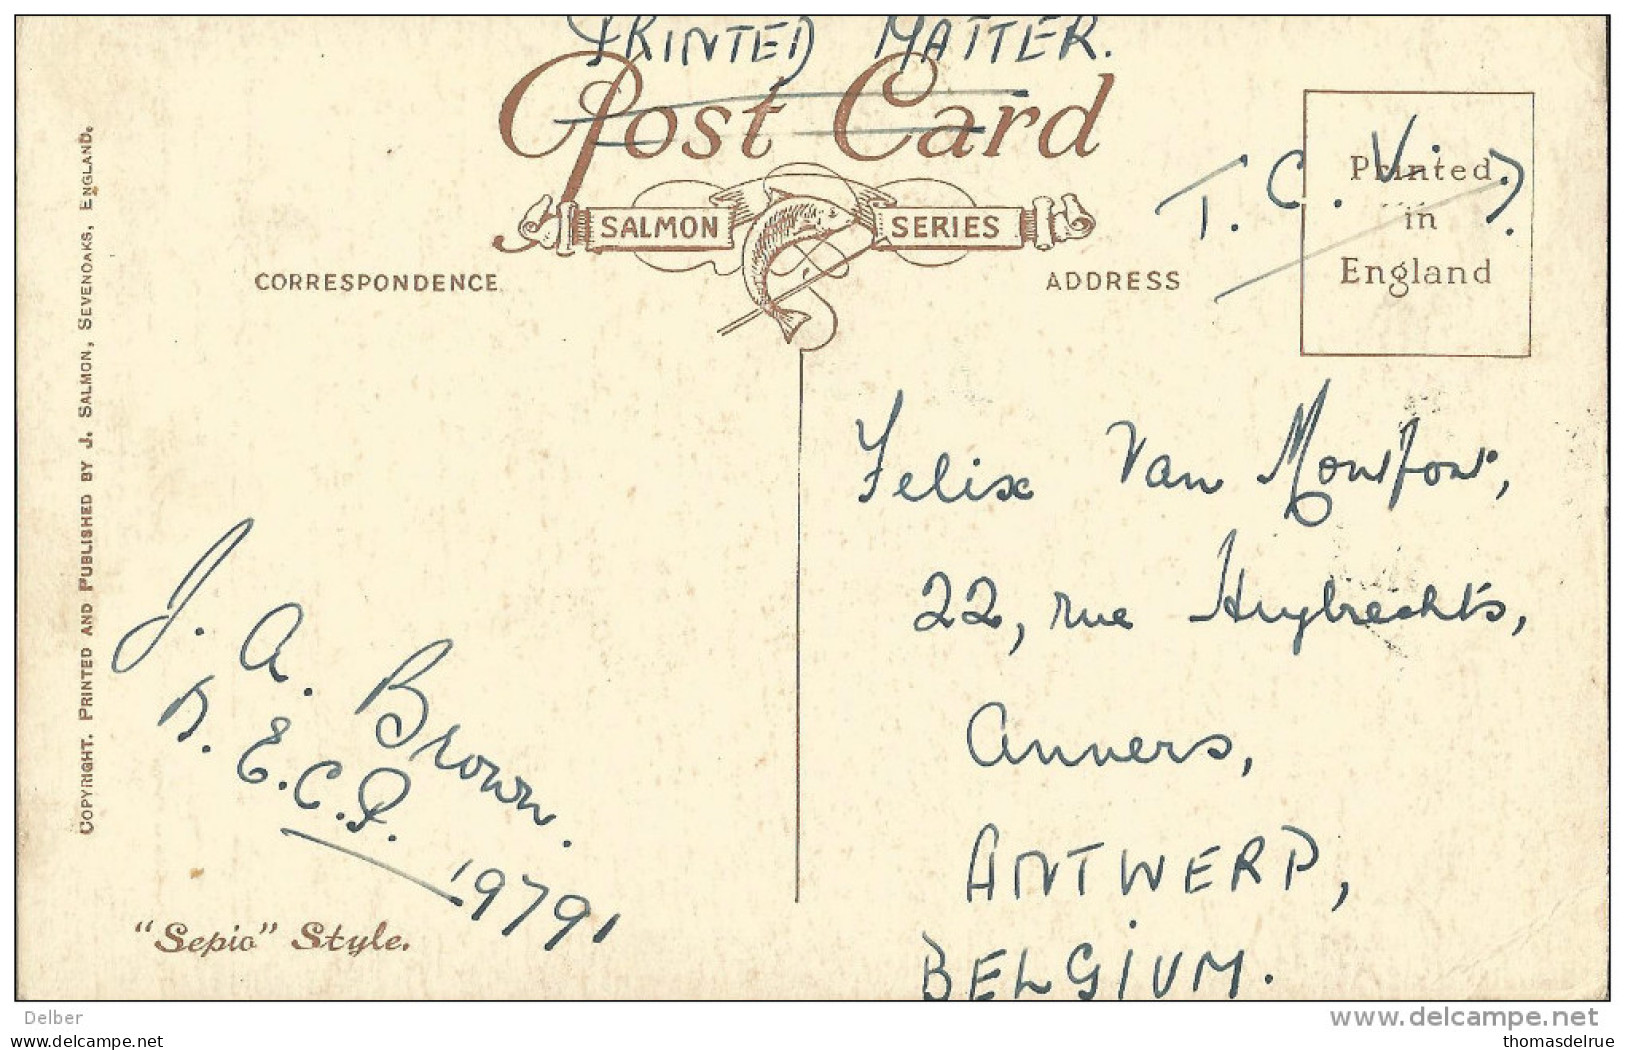 PRINTED MATTER.
Post Card
T. C. V.
Printed
in
England
SALMON SERIES
CORRESPONDENCE
ADDRESS
COPYRIGHT. PRINTED AND PUBLISHED BY J. SALMON, SEVENOAKS, ENGLAND.
Felix Van Montfort,
22, rue Huybrechts,
Anvers,
ANTWERP,
BELGIUM.
J. A. Brown.
B.E.C.P.
19791
"Sepio" Style.
Delber
www.delcampe.net
www.delcampe.com
thomasdelrue